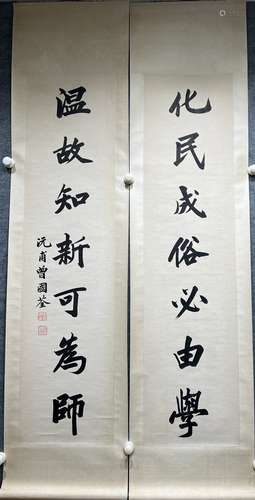 化民成俗必由學
温故知新可為師
沅甫曾國荃